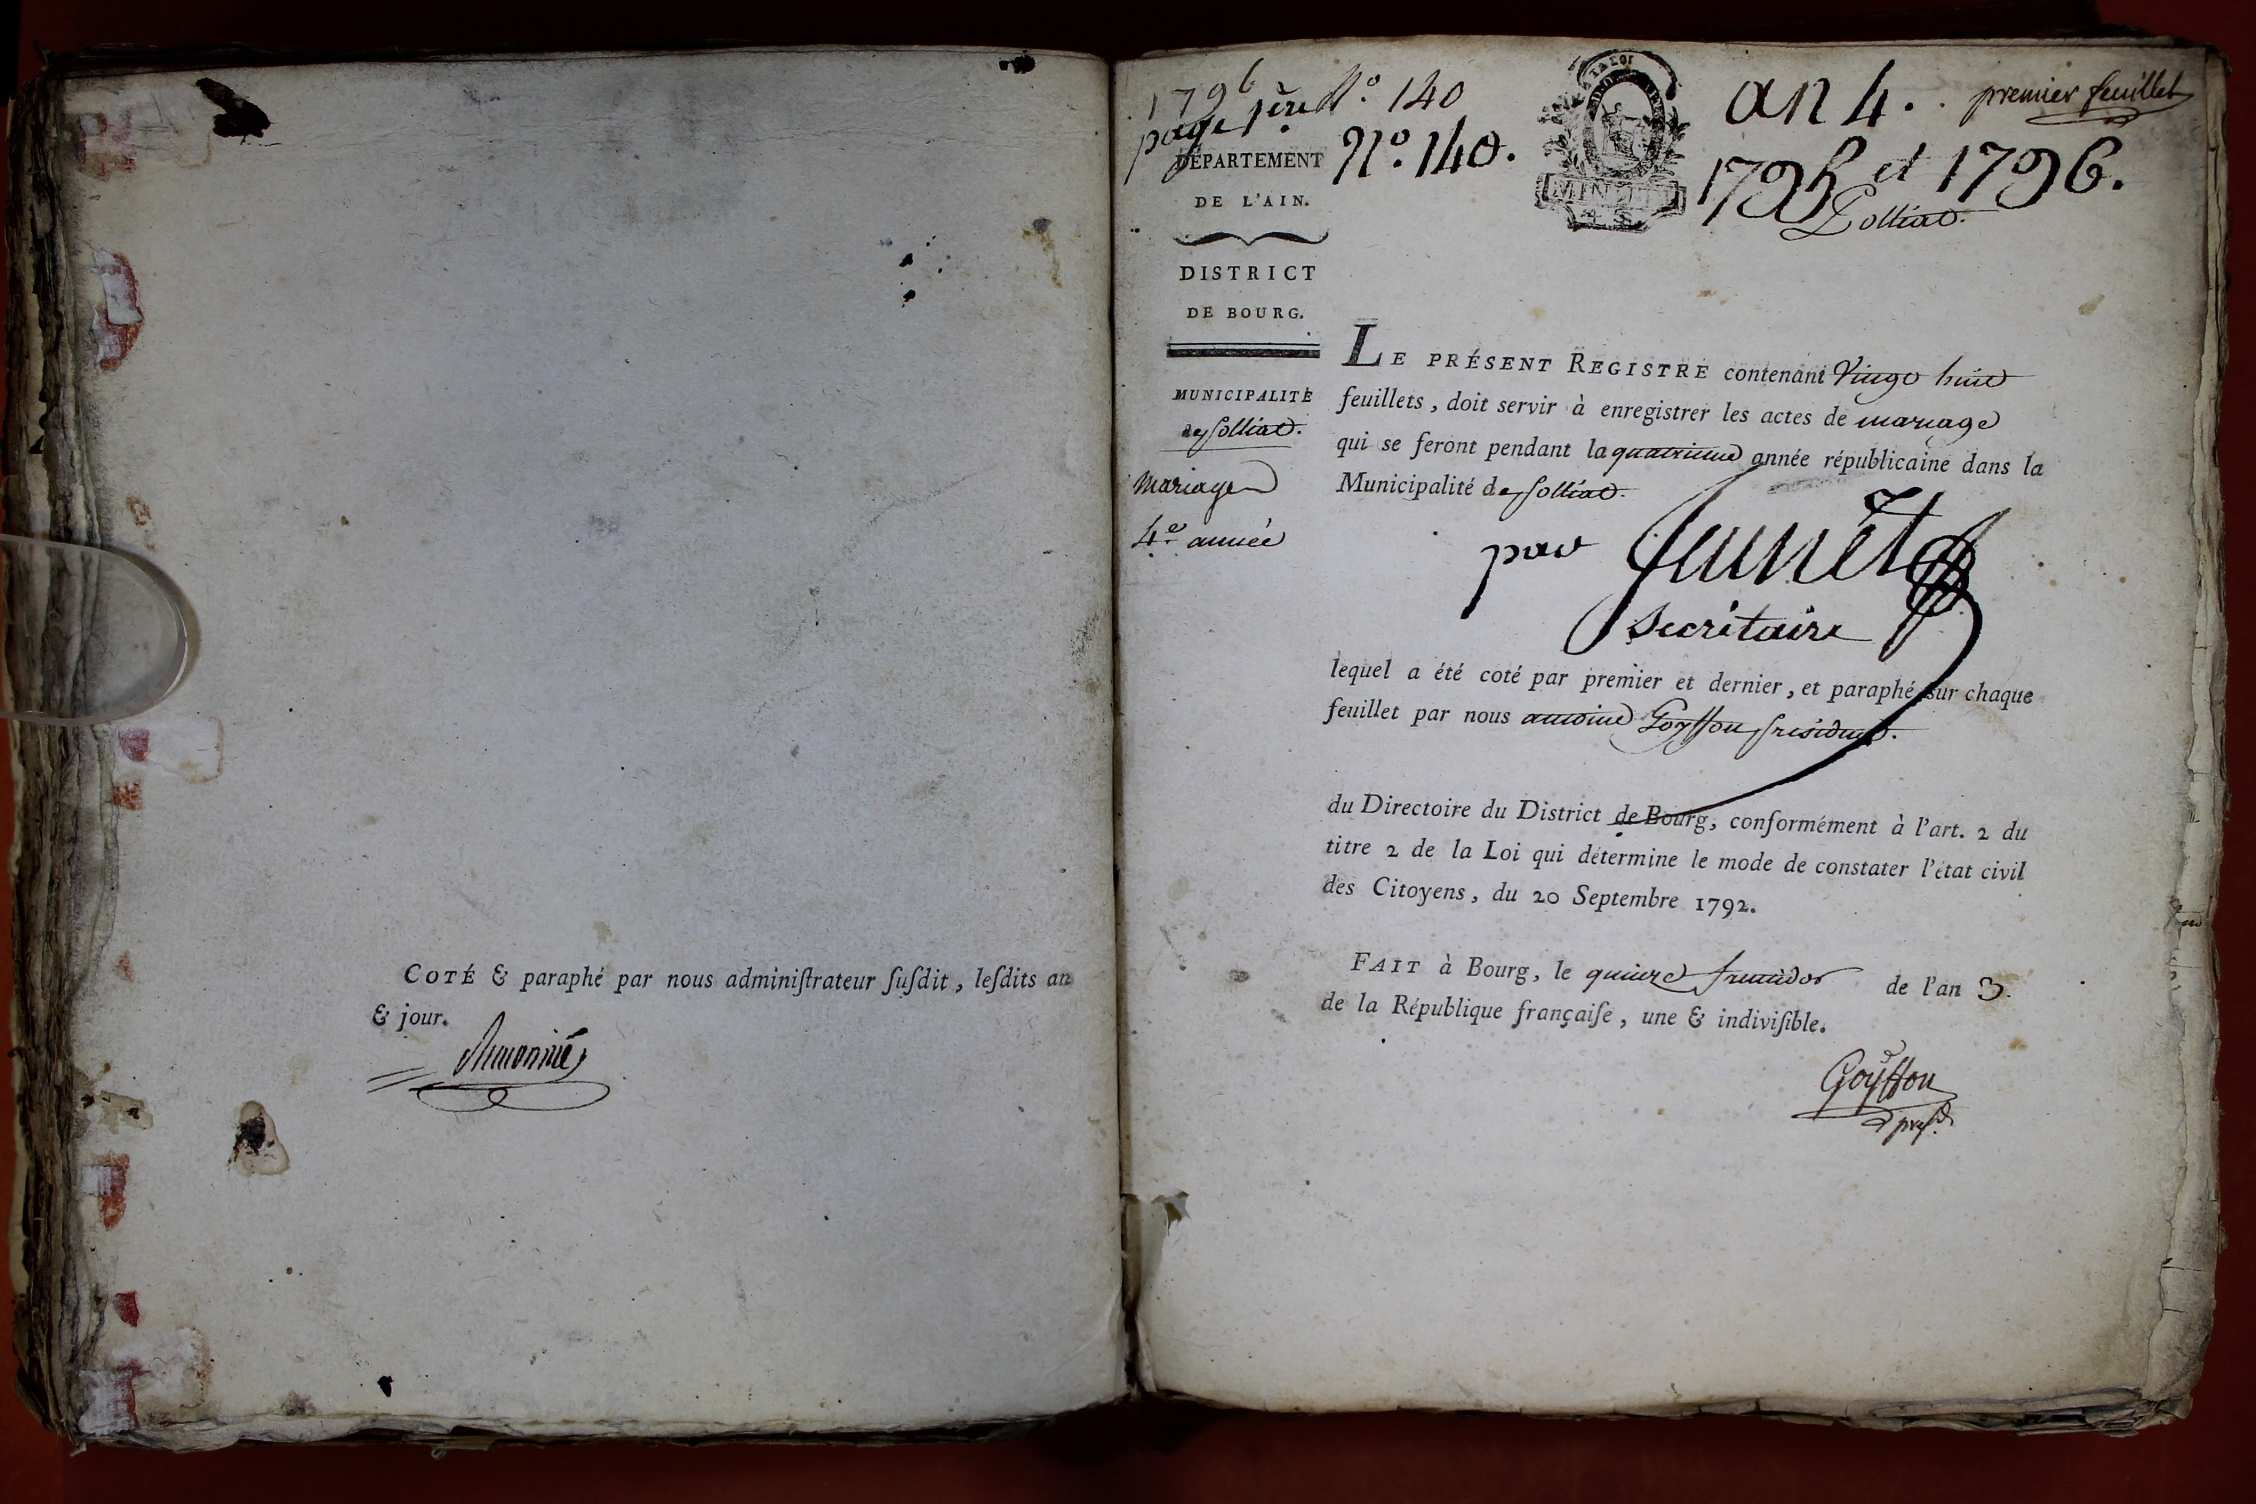 COTÉ & paraphé par nous adminiſtrateur ſuſdit, leſdits an
& jour.
1796 N.º 140
page 1ère
N.º 140.
an 4.
premier feuillet
1795 et 1796.
Polliat.
DÉPARTEMENT
DE L'AIN.
DISTRICT
DE BOURG.
MUNICIPALITÉ
de polliat.
mariage
4.e année
LE PRÉSENT REGISTRE contenant Vingt huit
feuillets, doit servir à enregistrer les actes de mariage
qui se feront pendant la quatrieme année républicaine dans la
Municipalité de polliat.
par
secrétaire
lequel a été coté par premier et dernier, et paraphé sur chaque
feuillet par nous antoine Goyffon president.
du Directoire du District de Bourg, conformément à l'art. 2 du
titre 2 de la Loi qui détermine le mode de constater l'état civil
des Citoyens, du 20 Septembre 1792.
FAIT à Bourg, le quinze fructidor de l'an 3.
de la République françaiſe, une & indiviſible.
Goyffon